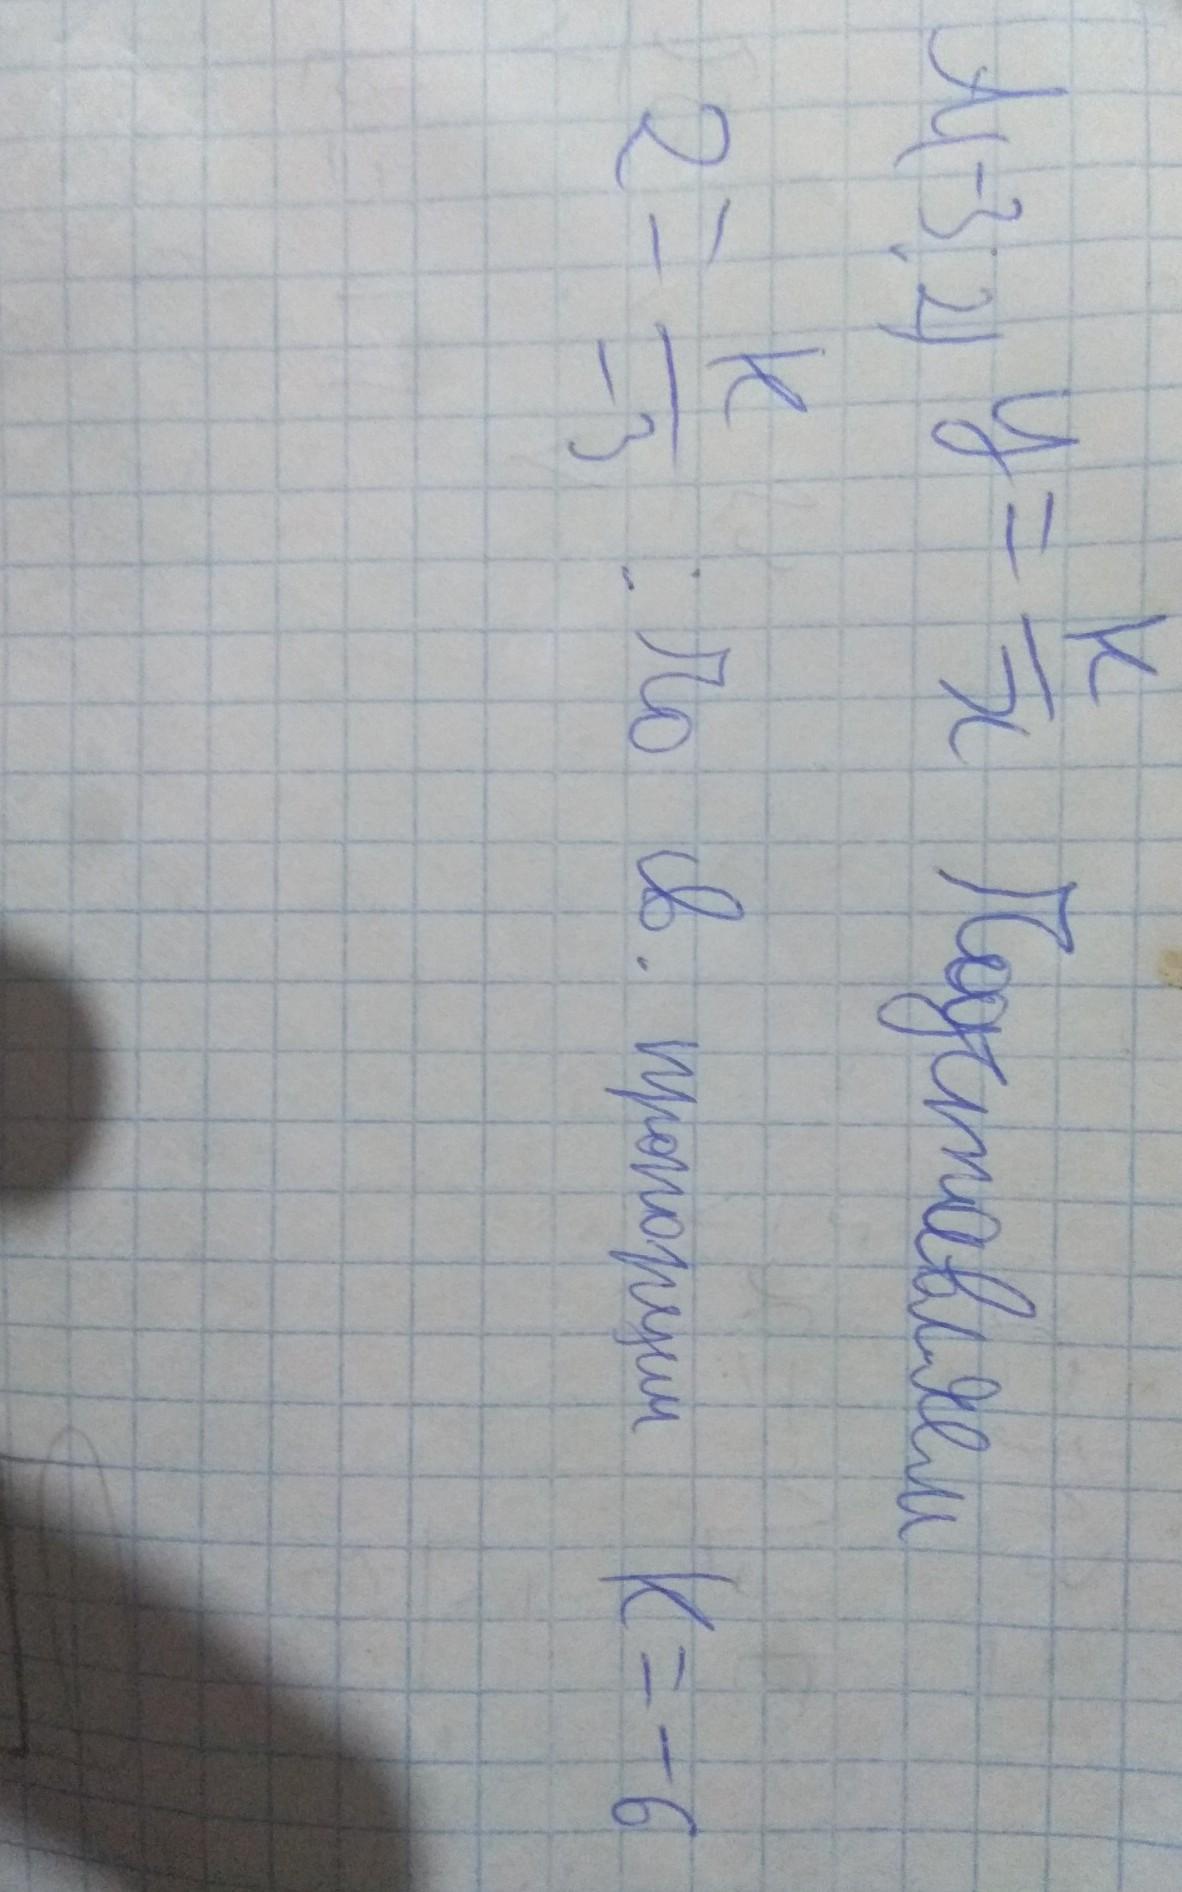 М(-3; 2) y = k/x Подставляем
2 = k/-3 : По св. пропорции k = -6